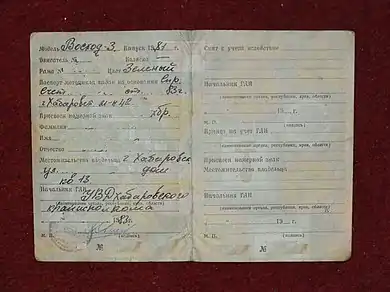 Модель Восход-3 Выпуск 1981 г.
Двигатель № Коляска —
Рама № Цвет Зеленый
Паспорт мотоцикла выдан на основании Спр.
Счет 83 г.
г. Хабаровск м-н 42
Присвоен номерной знак хбр.
Фамилия
Имя
Отчество
Местожительство владельца г. Хабаровск
ул. дом
кв 13
Начальник ГАИ УВД Хабаровского
крайисполкома
(наименование органа, республики, края, области)
1983 г.
М. П. (подпись)
№
Снят с учета вследствие
Начальник ГАИ
(наименование органа, республики, края, области)
19 г.
М. П. (подпись)
Принят на учет ГАИ
(наименование органа, республики, края, области)
Присвоен номерной знак
Местожительство владельца
Начальник ГАИ
(наименование органа, республики, края, области)
19 г.
М. П. (подпись)
№